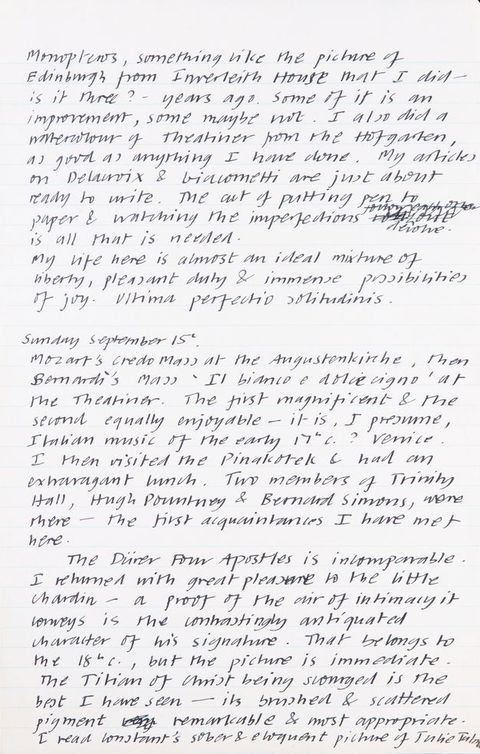 Monopteros, something like the picture of
Edinburgh from Inverleith House that I did –
is it three? – years ago. Some of it is an
improvement, some maybe not. I also did a
watercolour of Theatiner from the Hofgarten,
as good as anything I have done. My articles
on Delacroix & Giacometti are just about
ready to write. The act of putting pen to
paper & watching the imperfections
dissolve.
is all that is needed.
My life here is almost an ideal mixture of
liberty, pleasant duty & immense possibilities
of joy. Ultima perfectio solitudinis.
Sunday September 15th.
Mozart's Credo Mass at the Augustenkirche, then
Bernardi's Mass 'Il bianco e dolce cigno' at
the Theatiner. The first magnificent & the
second equally enjoyable – it is, I presume,
Italian music of the early 17th c.? Venice.
I then visited the Pinakotek & had an
extravagant lunch. Two members of Trinity
Hall, Hugh Pountney & Bernard Simons, were
there – the first acquaintances I have met
here.
The Dürer Four Apostles is incomparable.
I returned with great pleasure to the little
Chardin – a proof of the air of intimacy it
conveys is the contrastingly antiquated
character of his signature. That belongs to
the 18th c., but the picture is immediate.
The Titian of Christ being scourged is the
best I have seen – its brushed & scattered
pigment remarkable & most appropriate.
I read Constant's sober & eloquent picture of Julie